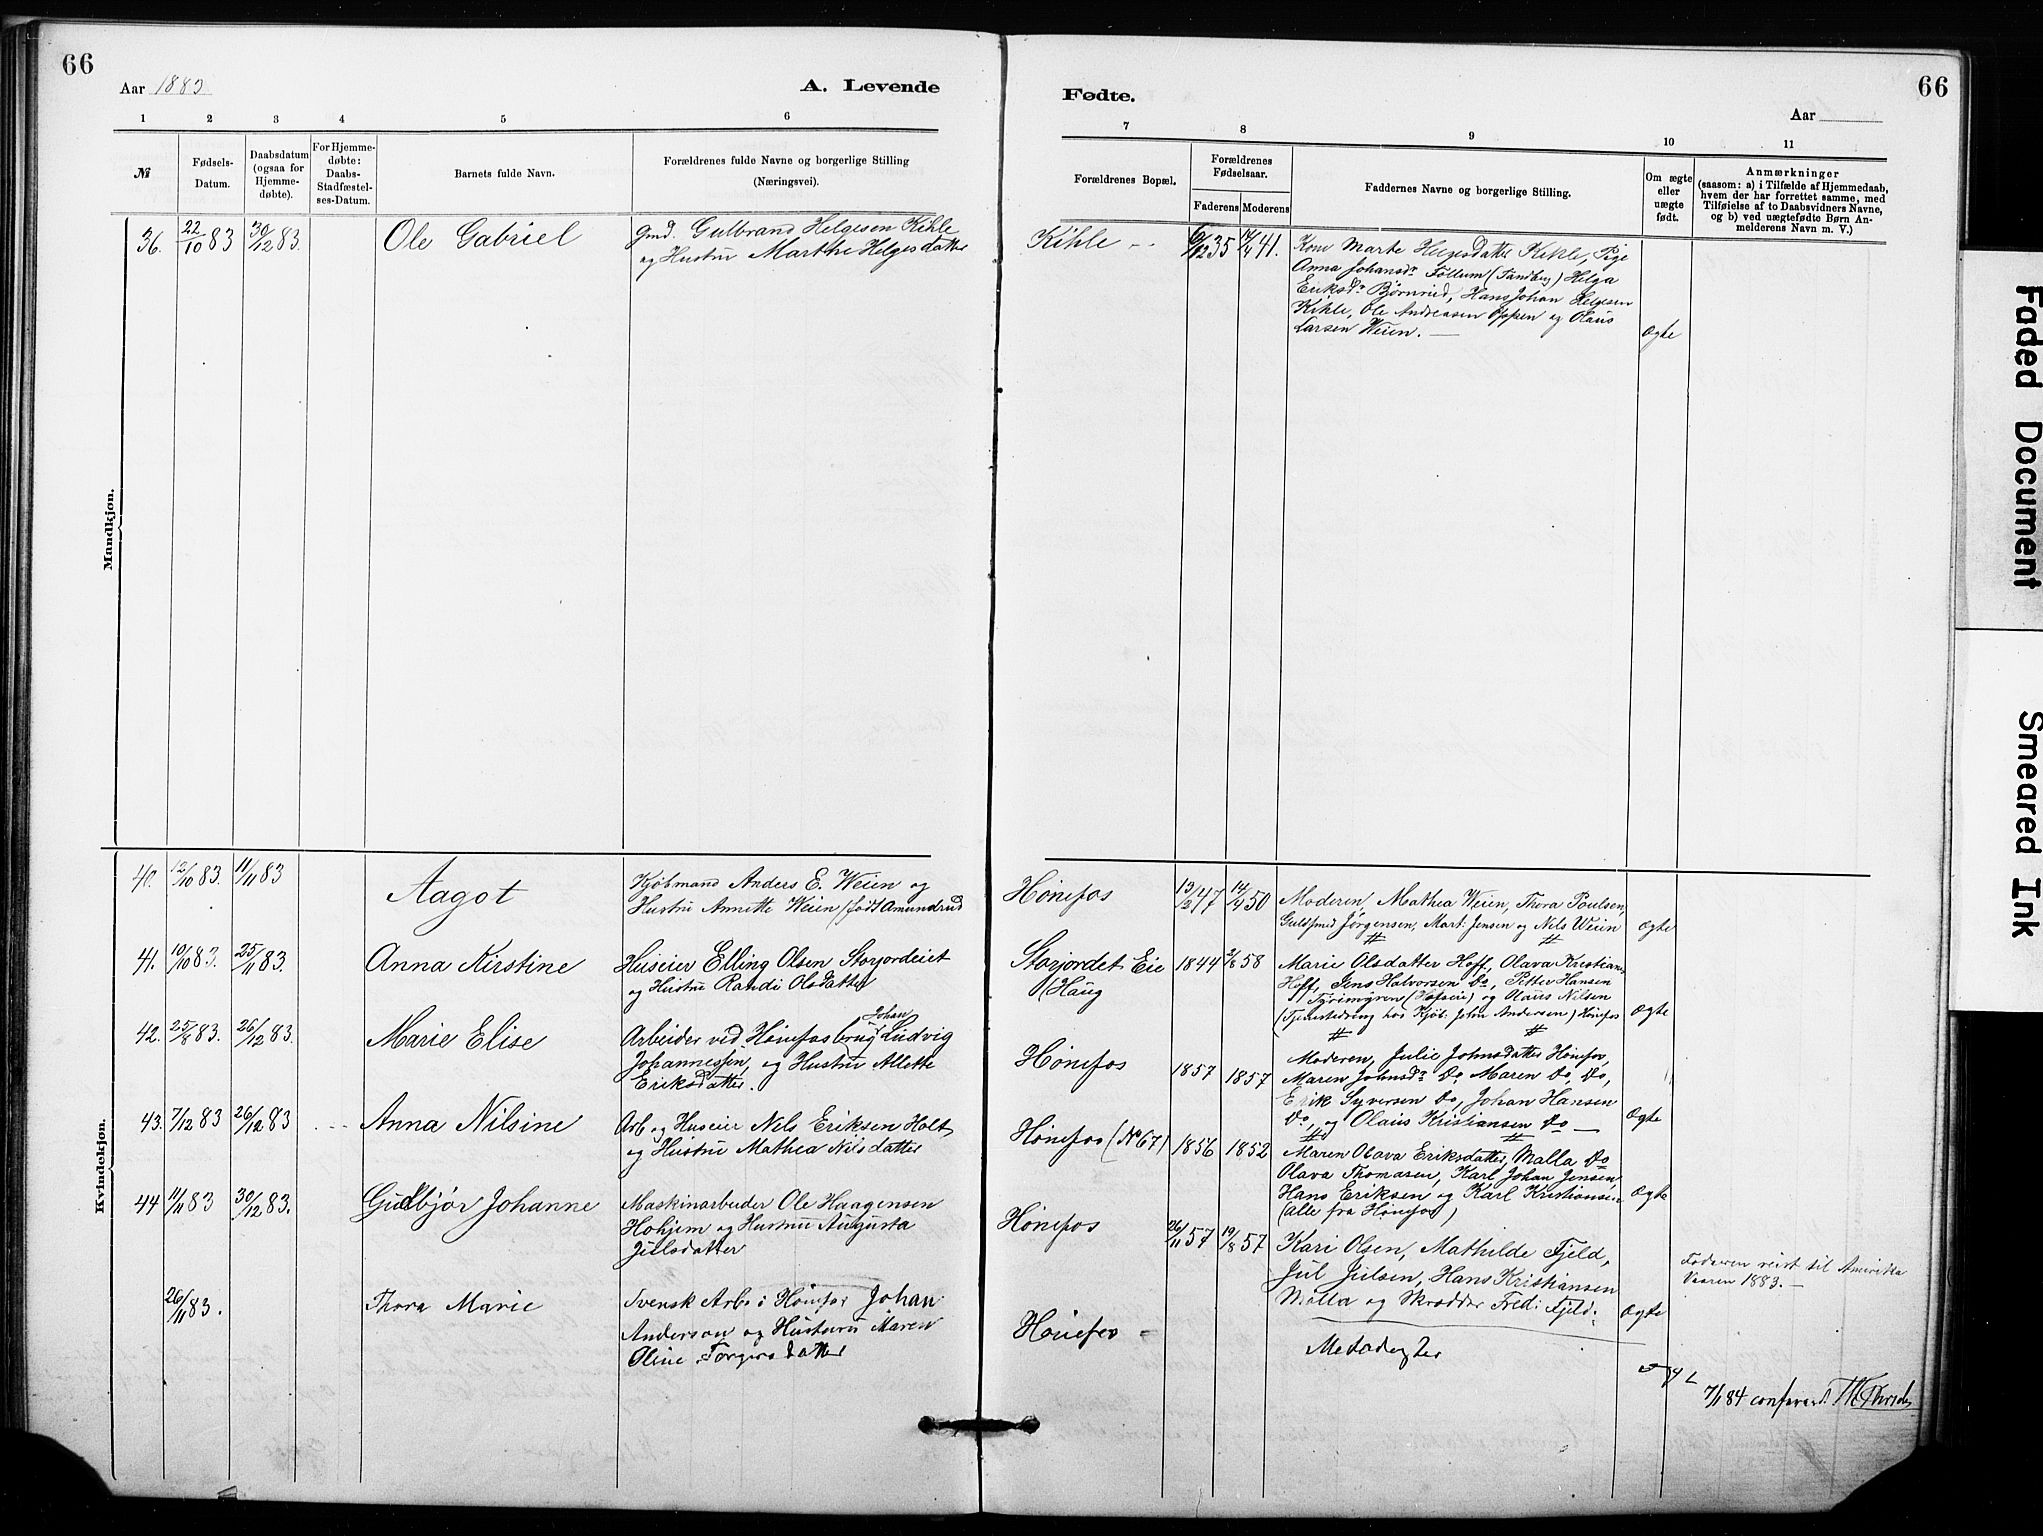 66
Aar 1883
A. Levende
Fødte.
Aar
66
1 2 3 4 5 6 7 8 9 10 11
№
Fødsels-
Datum.
Daabsdatum
(ogsaa for
Hjemme-
døbte).
For Hjemme-
døbte:
Daabs-
Stadfæstel-
ses-Datum.
Barnets fulde Navn.
Forældrenes fulde Navne og borgerlige Stilling
(Næringsvei).
Forældrenes Bopæl.
Forældrenes
Fødselsaar.
Faderens Moderens
Faddernes Navne og borgerlige Stilling.
Om ægte
eller
uægte
født.
Anmærkninger
(saasom: a) i Tilfælde af Hjemmedaab,
hvem der har forrettet samme, med
Tilføielse af to Daabsvidners Navne,
og b) ved uægtefødte Børn An-
melderens Navn m. V.)
Mandkjøn.
36. 22/10 83 30/12 83. Ole Gabriel
Gmd. Gulbrand Helgesen Kihle
og Hustru Marthe Helgesdatter
Kihle - 6/12 35 14/4 41.
Kone Marte Helgesdatter Kihle, Pige
Anna Johansdr Follum (Tandberg) Helga
Eriksdr Bjørnrud, Hans Johan Helgesen
Kihle, Ole Andreasen Oppen og Olaus
Larsen Weien. —
Ægte
Kvindekjøn.
40. 12/10 83. 11/11 83 Aagot
Kjøbmand Anders E. Weien og
Hustru Annette Weien (født Amundrud
Hönefos 13/2 47 14/4 50
Moderen, Mathea Weien, Thora Poulsen,
Guldsmed Jørgensen, Mart: Jensen og Nils Weien
Ægte
41. 10/10 83. 25/11 83. Anna Kirstine
Huseier Elling Olsen Storjordeiet
og Hustru Randi Olsdatter
Storjordet Eie
(Haug
1844 2/8 58
Marie Olsdatter Hoff, Olava Kristians
Hoff, Jens Halvorsen Do, Petter Hansen
Tyrimyren (Hofseie) og Olaus Nilsen
(Tjenestedreng hos Kjøb: John Andersen) Hönefos
Ægte
42. 25/8 83. 26/12 83. Marie Elise
Johan
Arbeider ved Hönefosbrug Ludvig
Johannessen, og Hustru Allette
Eriksdatter.
Hönefos 1857 1857
Moderen, Julie Johnsdatter Hönefos,
Maren Johnsdr Do, Maren Do, Do,
Erik Syversen Do, Johan Hansen
Do, og Olaus Kristiansen Do —
Ægte
43. 7/12 83 26/12 83 Anna Nilsine
Arb og Huseier Nels Eriksen Holt
og Hustru Mathea Nilsdatter
Hönefos (No 67) 1856 1852
Maren Olava Eriksdatter, Malla Do
Olava Thomasen, Karl Johan Jensen,
Hans Eriksen og Karl Kristiansen
(alle fra Hönefos)
Ægte
44 11/11 83 30/12 83. Gudbjør Johanne
Maskinarbeider Ole Haagensen
Hohjem og Hustru Augusta
Julsdatter
Hönefos 26/11 57 19/8 57
Kari Olsen, Mathilde Fjeld,
Jul Julsen, Hans Kristiansen
Molla og Skrædder Fred: Fjeld.
Ægte
Faderen reist til Amerika
Vaaren 1883. —
26/11 83. Thora Marie
Svensk Arb. i Hönefos Johan
Anderson og Hustru Maren
Oline Torgersdatter
Hönefos -
Metodister
7/1 84 confereret